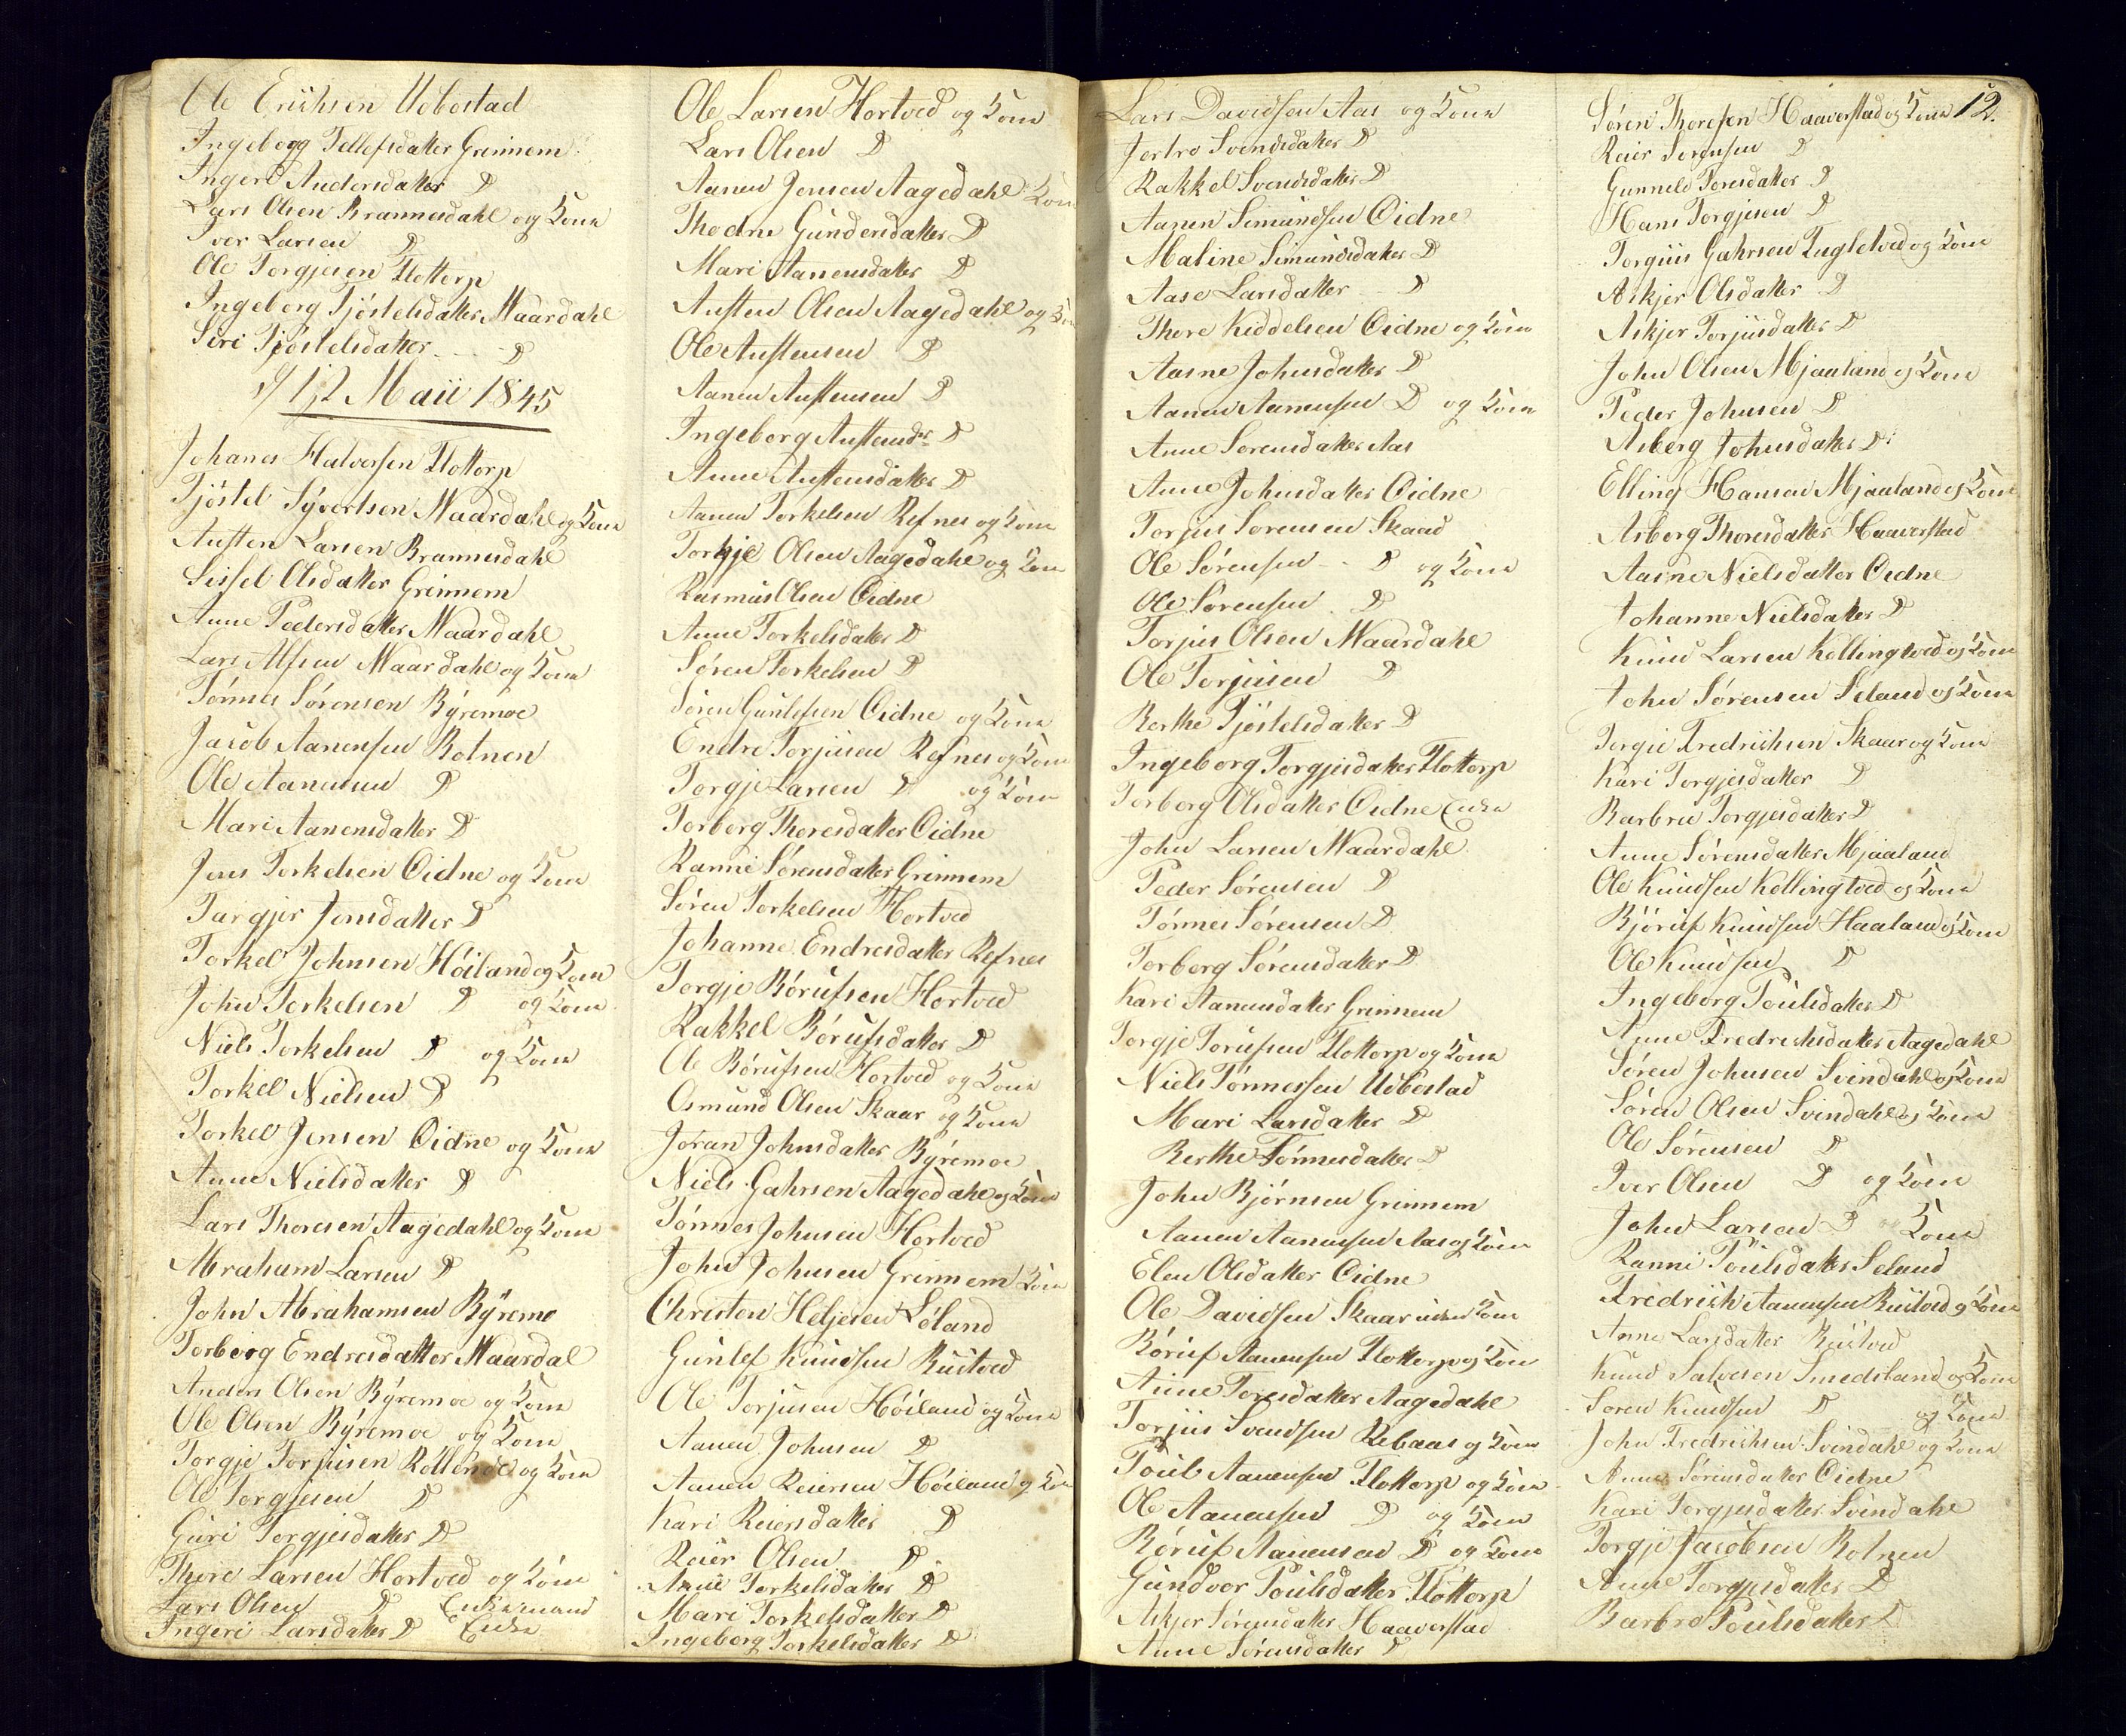 Ole Eriksen Udbostad
Ingeborg Tellefsdatter Grinnem
Ingerd Andersdatter D
Lars Olsen Brannesdahl og Kone
Iver Larsen D
Ole Torgjesen Flottorp
Ingeborg Tjöstelsdatter Maardahl
Siri Tjöstelsdatter D
d/ 12 Maii 1845
Johanes Halvorsen Flottorp
Tjöstel Syvertsen Maardahl og Kone
Austen Larsen Brannesdahl
Sissel Olsdatter Grinnem
Anne Pedersdatter Maardahl
Lars Alfsen Maardahl og Kone
Tönnes Sörensen Byremoe
Jacob Aanensen Rolnen
Ole Aanensen D
Mari Aanensdatter D
Jens Torkelsen Oidne og Kone
Targjer Jensdatter D
Torkel Johnsen Höiland og Kone
John Torkelsen D og Kone
Niels Torkelsen D og Kone
Torkel Nielsen D
Torkel Jensen Oidne og Kone
Anne Nielsdatter D
Lars Thoresen Aagedahl og Kone
Abraham Larsen D
John Abrahamsen Byremo
Torborg Endresdatter Maardal
Anders Olsen Byremoe og Kone
Ole Olsen Byremoe og Kone
Torgje Torjusen og Kone
Ole Torgjesen D
Guri Torgjesdatter D
Thore Larsen Hortved og Kone
Lars Olsen D Enkemand
Ingeri Larsdatter D Enke
Ole Larsen Hortved og Kone
Lars Olsen D
Aanen Jensen Aagedahl Kone
Thodne Gundersdatter D
Mari Aanensdatter D
Austen Olsen Aagedahl og Kone
Ole Austensen D
Aanen Austensen D
Ingeborg Austensdr D
Anne Austensdatter D
Aanen Torkelsen Refnes og Kone
Torkje Olsen Aagedahl og Kone
Rasmus Olsen Oidne
Anne Torkelsdatter D
Sören Torkelsen D
Sören Gunlefsen Oidne og Kone
Endre Torjusen Refnes og Kone
Torgje Larsen D og Kone
Torborg Thoresdatter Oidne
Ranni Sörensdatter Grinnem
Sören Torkelsen Hortved
Johanne Endresdatter Refnes
Torgje Börufsen Hortved
Rakkel Börufsdatter D
Ole Börufsen Hortved og Kone
Osmund Olsen Skaar og Kone
Jöran Johnsdatter Byremoe
Niels Gahrsen Aagedahl og Kone
Tönnes Johnsen Hortved
John Johnsen Grinnem Kone
Christen Heljesen Löland
Gunlef Knudsen Rustved
Ole Torjusen Höiland og Kone
Aanen Johnsen D
Aanen Reiersen Höiland og Kone
Kari Reiersdatter D
Reier Olsen D
Anne Torkelsdatter D
Mari Torkelsdatter D
Ingeborg Torkelsdatter D
Lars Davidsen Aas og Kone
Jertro Svendsdatter D
Rakkel Svendsdatter D
Aanen Simundsen Oidne
Maline Simundsdatter D
Aase Larsdatter D
Thore Kiddelsen Oidne og Kone
Aasne Johnsdatter D
Aanen Aanensen D og Kone
Anne Sorensdatter Aas
Anne Johnsdatter Oidne
Torjus Sorensen Skaad
Ole Sörensen D og Kone
Ole Sörensen D
Torjus Olsen Maardahl
Ole Torjusen D
Berthe Tjöstelsdatter D
Ingeborg Torgjesdatter Flottorp
Torborg Olsdatter Oidne Enke
John Larsen Maardahl
Peder Sörensen D
Tönnes Sörensen D
Torborg Sörensdatter D
Kari Aanensdatter Grinnem
Torgje Torufsen Flottorp og Kone
Niels Tönnessen Udbostad
Mari Larsdatter D
Berthe Tönnesdatter D
John Björnsen Grinnem
Aanen Aanensen Aas og Kone
Elen Olsdatter Oidne
Ole Davidsen Skaar uden Kone
Böruf Aanensen Flottorp og Kone
Anne Toresdatter Aagedahl
Torjus Svendsen Rebaas og Kone
Poul Aanensen Flottorp og Kone
Ole Aanensen D og Kone
Böruf Aanensen D og Kone
Gundvor Poulsdatter Flottorp
Askjer Sörensdatter Haaverstad
Anne Sörensdatter D
12.
Sören Thoresen Haaverstad og Kone
Reier Sorensen D
Gunneld Toresdatter D
Hans Torgjesen D
Torguis Gahrsen Fugletved og Kone
Askjer Olsdatter D
Askjer Torjusdatter D
John Olsen Mjaaland og Kone
Peder Johnsen D
Asberg Johnsdatter D
Elling Hansen Mjaaland og Kone
Asborg Thoresdatter Haaverstad
Aasne Nielsdatter Oidne
Johanne Nielsdatter D
Knud Larsen Kollingtved og Kone
John Sörensen Seland og Kone
Torgie Fredrichsen Skaar og Kone
Kari Torgjesdatter D
Barbru Torgjesdatter D
Anne Sörensdatter Mjaaland
Ole Knudsen Kollingtved og Kone
Björuf Knudsen Haaland og Kone
Ole Knudsen D
Ingeborg Poulsdatter D
Anne Fredrichsdatter Aagedahl
Sören Johnsen Svindahl og Kone
Sören Olsen Svindahl og Kone
Ole Sörensen D
Iver Olsen D og Kone
John Larsen D og Kone
Ranni Poulsdatter Seland
Fredrich Aanensen Rustved og Kone
Anne Larsdatter Rustved
Knud Salvesen Smedsland og Kone
Soren Knudsen D og Kone
John Fredrichsen Svindahl og Kone
Anne Sörensdatter Oidne
Kari Torgjesdatter Svindahl
Torgje Jacobsen Rolnen
Anne Torgjesdatter D
Barbro Poulsdatter D